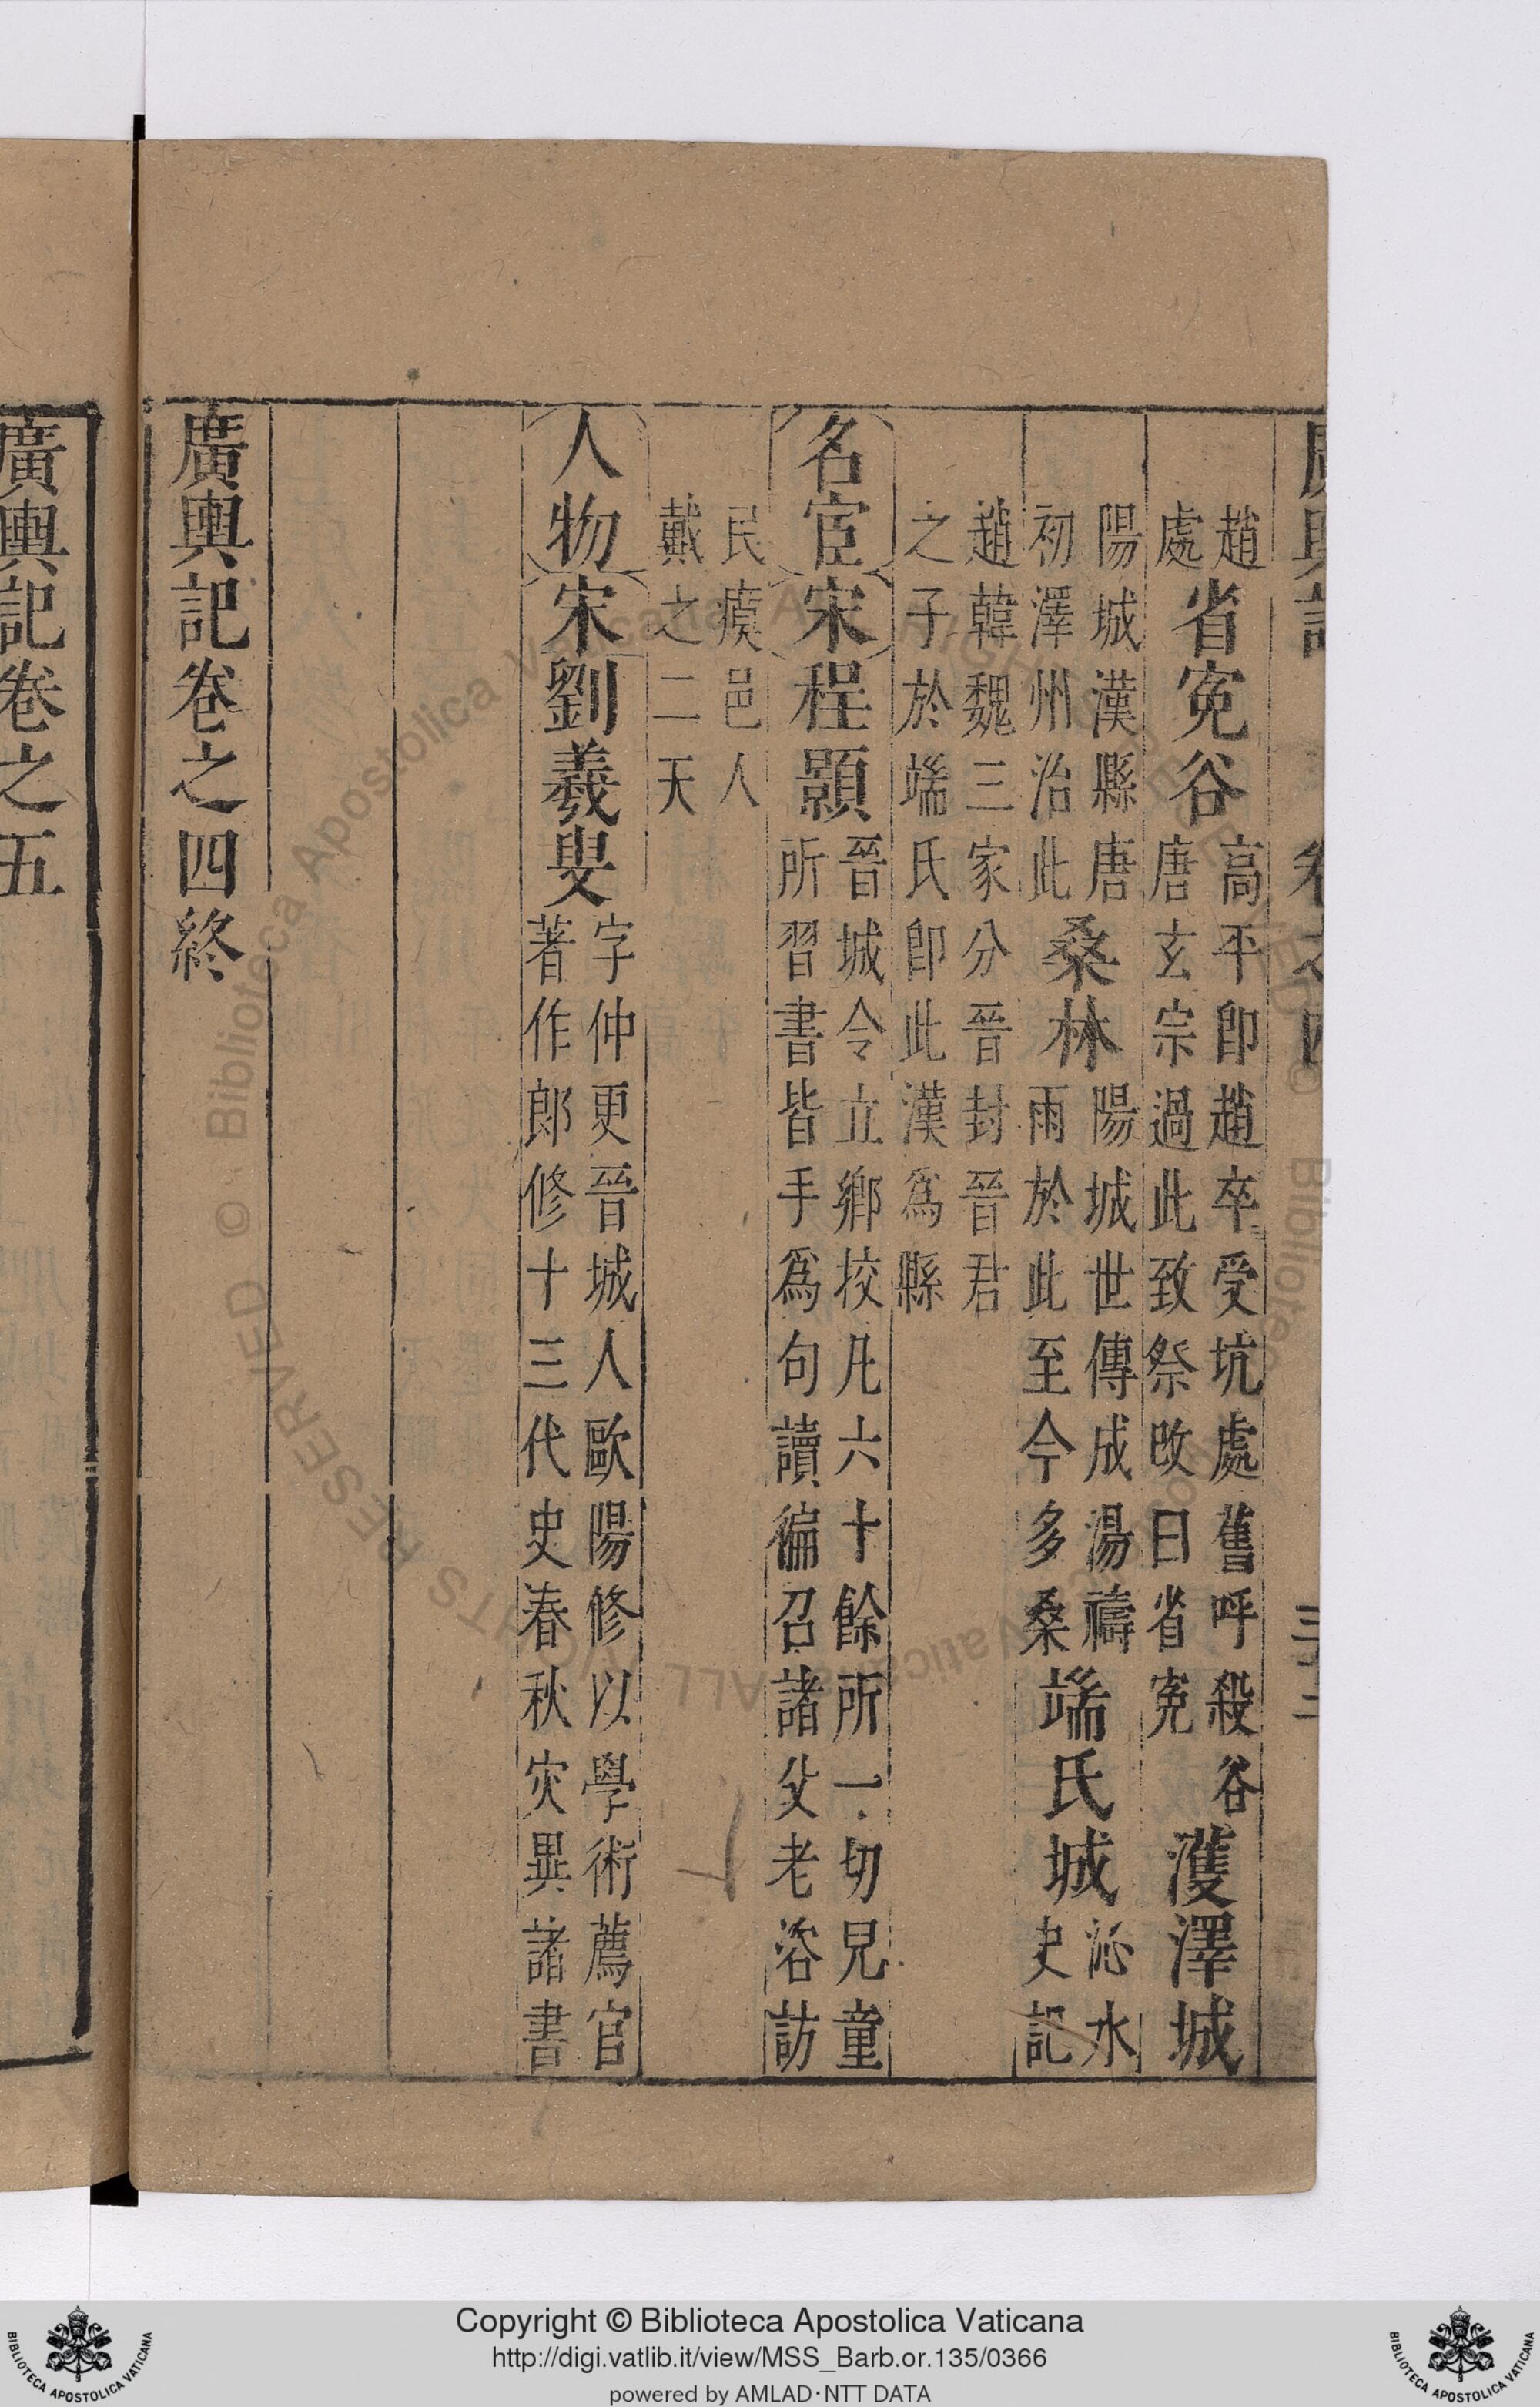 廣輿記 卷之四
趙處省寃谷高平卽趙卒受坑處舊呼殺谷唐玄宗過此致祭攺曰省寃濩澤城
陽城漢縣唐初澤州治此桑林陽城世傳成湯禱雨於此至今多桑端氏城沁水史記
趙韓魏三家分晉封晉君之子於端氏卽此漢爲縣
名宦宋程顥晉城令立鄉校凡六十餘所一切兒童所習書皆手爲句讀徧召諸父老咨訪
民瘼邑人戴之二天
人物宋劉羲叟字仲更晉城人歐陽修以學術薦官著作郎修十三代史春秋灾異諸書
廣輿記卷之四終
廣輿記卷之五
Copyright © Biblioteca Apostolica Vaticana
http://digi.vatlib.it/view/MSS_Barb.or.135/0366
powered by AMLAD·NTT DATA